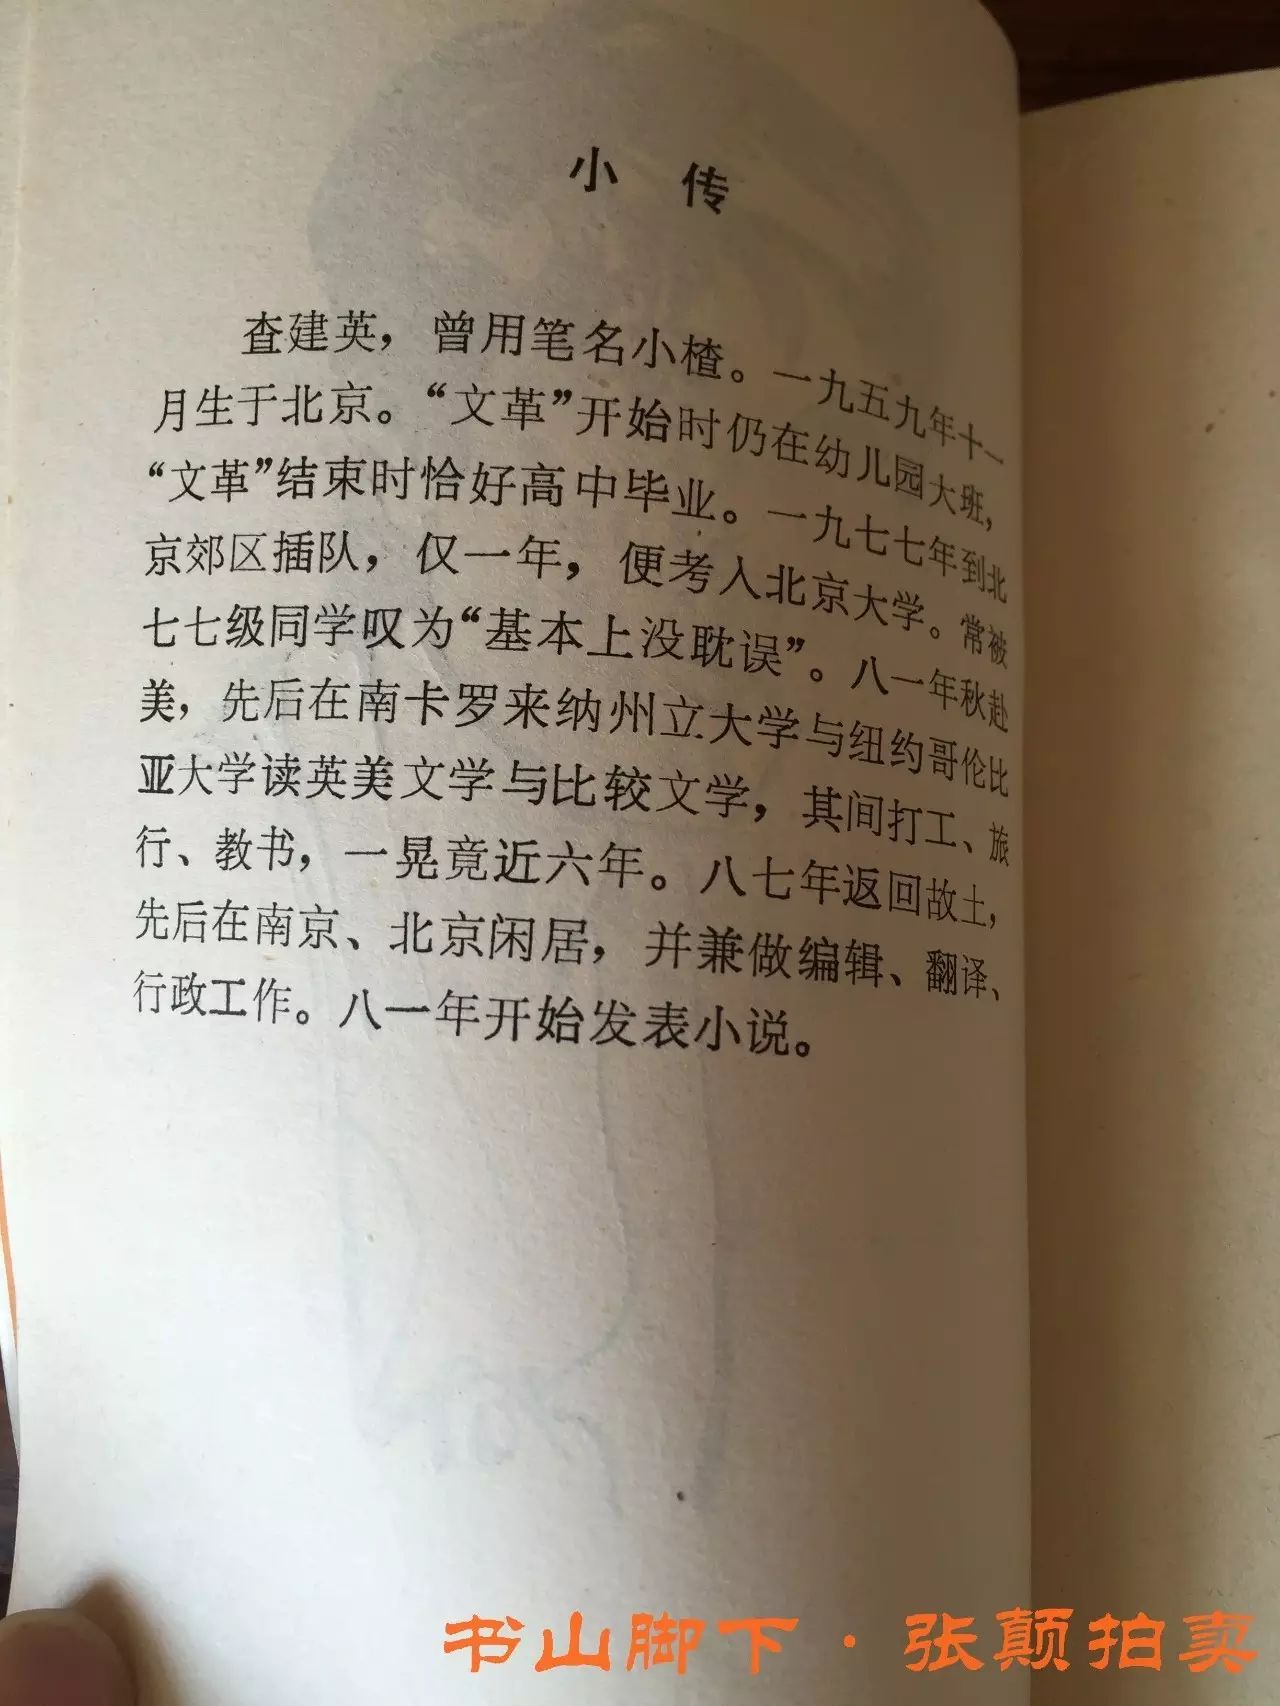 小 传
查建英，曾用笔名小楂。一九五九年十一
月生于北京。“文革”开始时仍在幼儿园大班，
“文革”结束时恰好高中毕业。一九七七年到北
京郊区插队，仅一年，便考入北京大学。常被
七七级同学叹为“基本上没耽误”。八一年秋赴
美，先后在南卡罗来纳州立大学与纽约哥伦比
亚大学读英美文学与比较文学，其间打工、旅
行、教书，一晃竟近六年。八七年返回故土，
先后在南京、北京闲居，并兼做编辑、翻译、
行政工作。八一年开始发表小说。
书山脚下·张颠拍卖